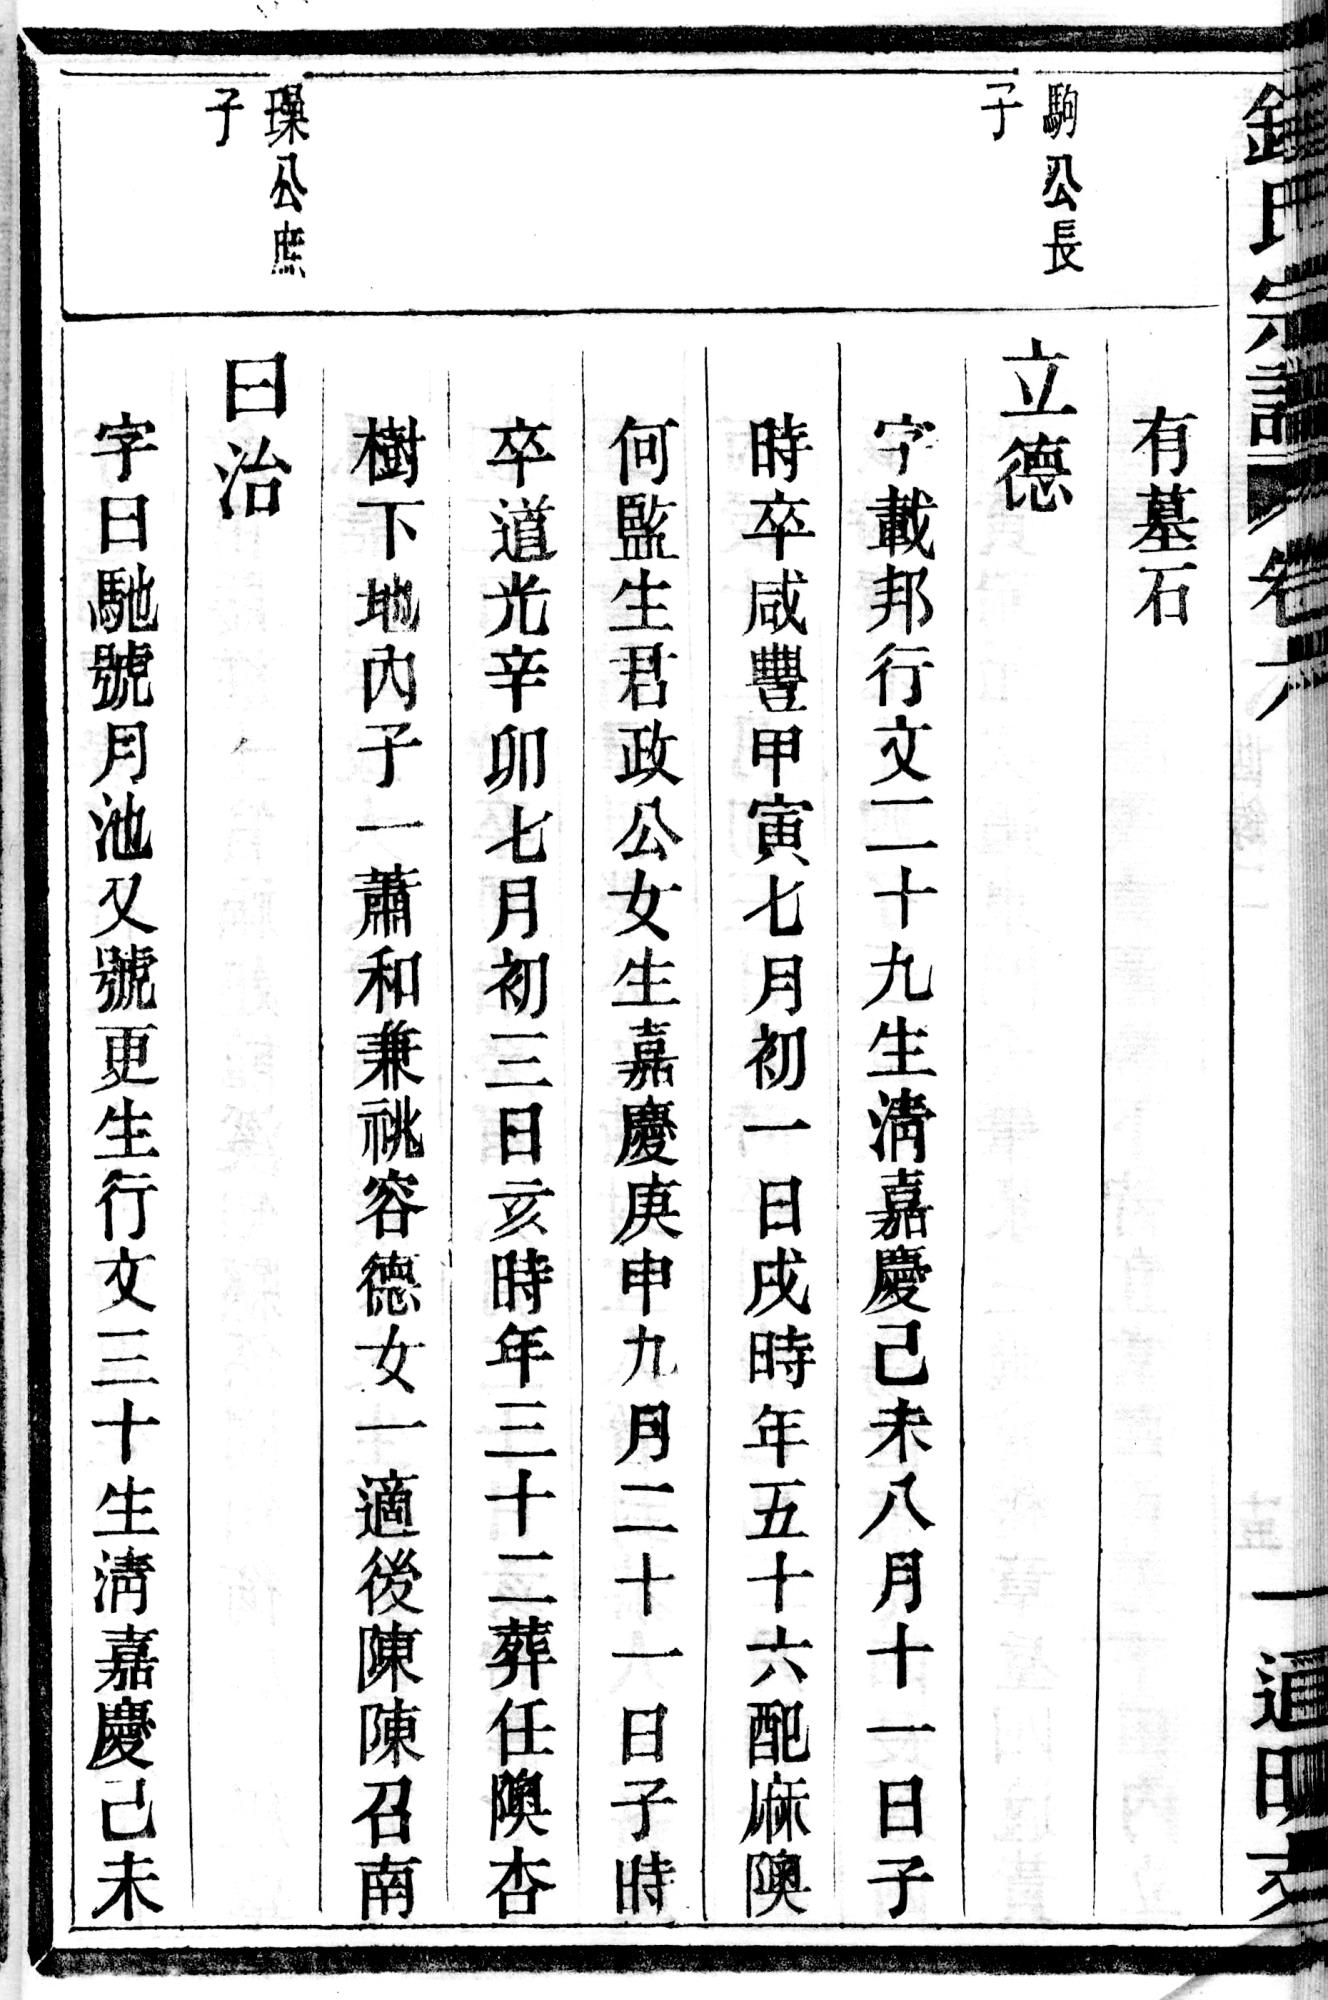 鍾氏宗譜 卷六 通明支
有墓石
駒公長
子
立德
字載邦行文二十九生淸嘉慶己未八月十一日子
時卒咸豐甲寅七月初一日戌時年五十六配麻隩
何監生君政公女生嘉慶庚申九月二十一日子時
卒道光辛卯七月初三日亥時年三十二葬任隩杏
樹下地內子一蕭和兼祧容德女一適後陳陳召南
璪公庶
子
曰治
字曰馳號月池又號更生行文三十生淸嘉慶己未